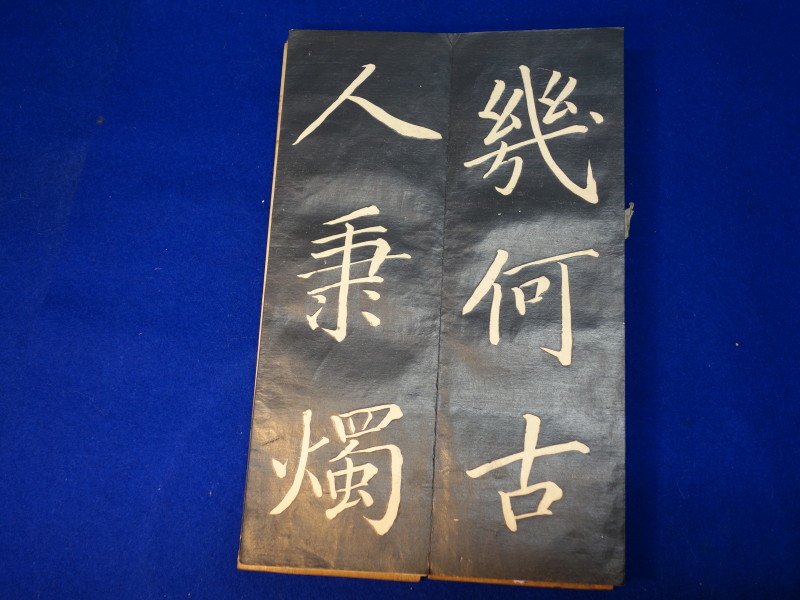 幾何古
人秉燭